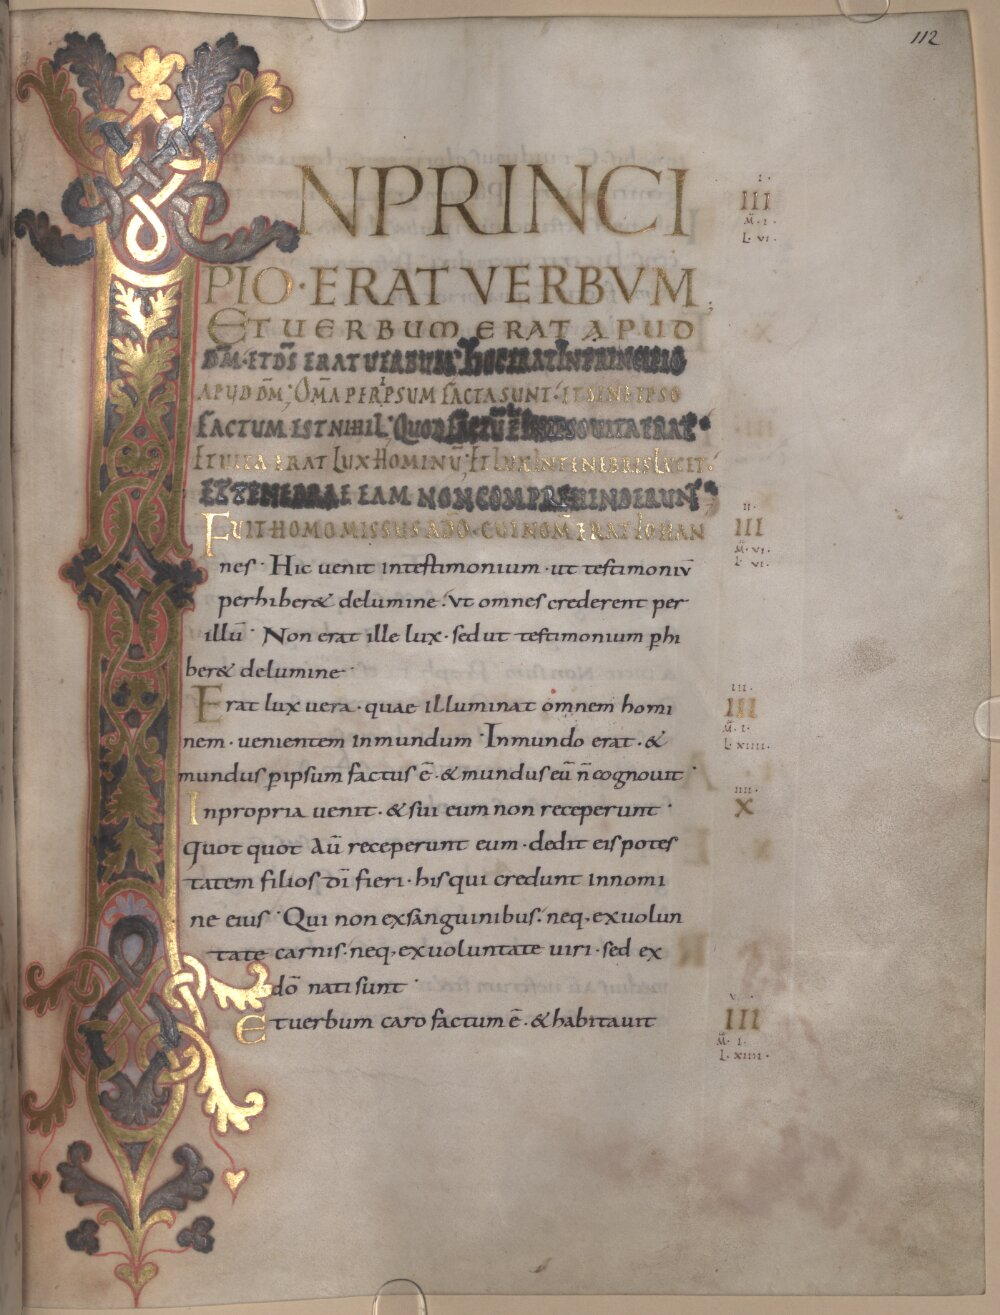 112
INPRINCI
PIO·ERAT VERBVM
ET UERBUM ERAT APUD
DM̄·ET DS̄ ERAT UERBUM; HOC ERAT IN PRINCIPIO
APUD DM̄; OMĀ PER IPSUM FACTA SUNT; ET SINE IPSO
FACTUM EST NIHIL; QUOD FACTŪ Ē IN IPSO UITA ERAT·
ET UITA ERAT LUX HOMINŪ; ET LUX IN TENEBRIS LUCET;
ET TENEBRAE EAM NON COMPREHENDERUNT;
FUIT HOMO MISSUS A DŌ·CUI NOM̄ ERAT IOHAN
nes· Hic uenit intestimonium·ut testimoniū
perhiber& delumine·Vt omnes crederent per
illū· Non erat ille lux·sed ut testimonium phi
ber& delumine·
Erat lux uera·quae illuminat omnem homi
nem·uenientem inmundum·Inmundo erat·&
mundus pipsum factus ē·&mundus eū n̄ cognouit·
Inpropria uenit·&sui eum non receperunt·
quot quot aū receperunt eum·dedit eis potes
tatem filios dī fieri·his qui credunt innomi
ne eius·Qui non exsanguinibus·neq·exuolun
tate carnis·neq·exuoluntate uiri·sed ex
dō nati sunt·
Etuerbum caro factum ē·&habitauit
I·
III
M̄·I·
L·VI·
II·
III
M̄·VI·
L·VI·
III·
III
M̄·I·
L·XIIII·
IIII·
X
V·
III
M̄·I·
L·XIIII·